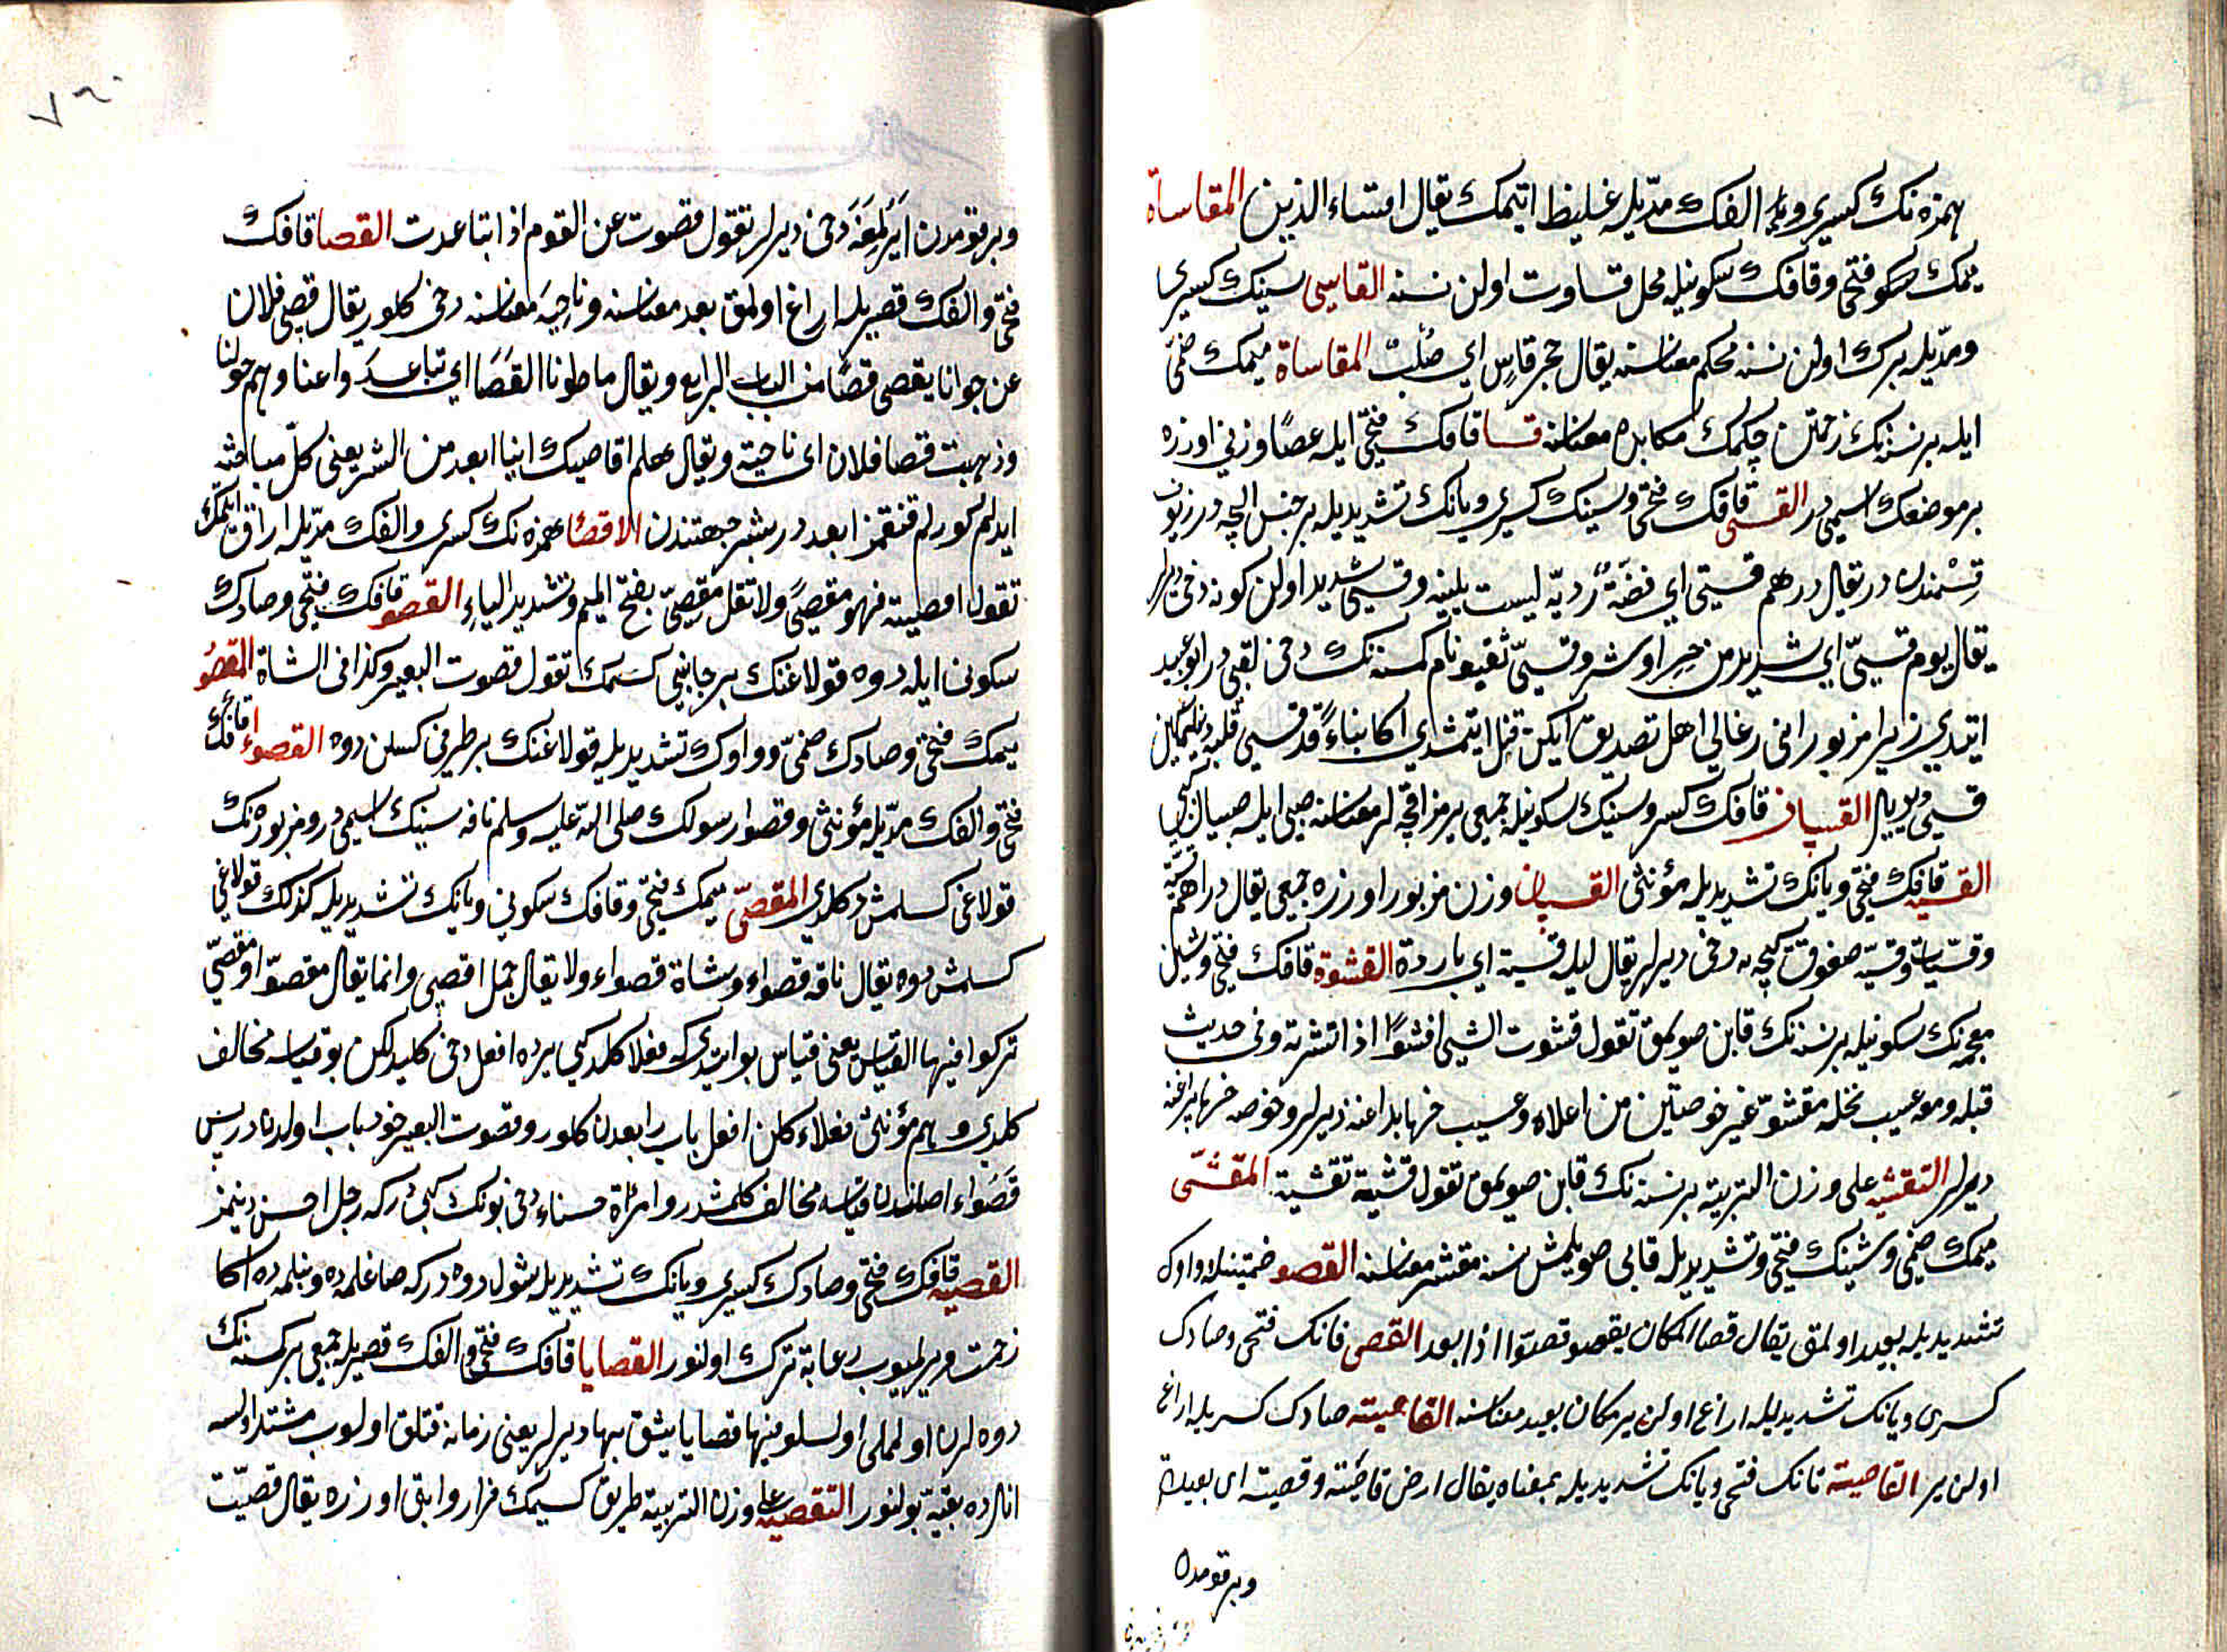 همزه‌نك كسرى والفك مدّيله غليظ اتمك يقال اقساء الذنب المقساة
ميمك فتحى وقافك سكونيله محل قساوت اولن نسنه القاسى سينك كسرى
ومدّيله برك اولن نسنه محكم معناسنه يقال حجر قاس اى صلب المقاساة ميمك ضمّى
ايله بر نسنه‌نك زحمتن چكمك مكابده معناسنه قسا قافك فتحى ايله عصا وزنى اوزره
بر موضعك اسميدر القسى قافك فتحى وسينك كسرى ويانك تشديديله بر جنس اقچه در زيوف
قسمندن در يقال درهم قسىّ اى فضة ردية ليست بلينة وقسى شديد اولن كونه دخى ديرلر
يقال يوم قسىّ اى شديد من حر او شر وقسىّ ثقيف نام كسنه‌نك دخى لقبى در ابو عبيد
ايتدى زيرا مزبور ابى رغالى اهل تصديق ايكن قتل ايتمشدى اكا بناء قد قسى قلبه ديمكله
قسى ديديلر القسيان قافك كسر وسينك سكونيله جمعى بر مز اقچه لر معناسنه صبى ايله صبيان كبى
القسيه قافك فتحى ويانك تشديديله مؤنثى القسيان وزن مزبور اوزره جمعى يقال دراهم قسيّة
وقسيّات وقسيّه صغوق كيجه‌يه دخى ديرلر يقال ليلة قسيّة اى باردة القشوة قافك فتحى وشين
معجمه‌نك سكونيله بر نسنه‌نك قابن صويمق تقول قشوت الشىء اقشوا اذا قشرته وفى حديث
قيلة ومعه عسيب نخلة مقشوّ غير خوصتين من اعلاه وعسيب خرما بداغنه ديرلر وخوصه خرما يپراغنه
ديرلر التقشيه على وزن التربية بر نسنه‌نك قابن صويمق تقول قشيته تقشية المقشّى
ميمك ضمّى وشينك فتحى وتشديديله قابى صويلمش نسنه مقشر معناسنه القصو ضمّتينله و واوك
تشديديله بعيد اولمق يقال قصا المكان يقصو قصوّا اذا بعد القصى قافك فتحى وصادك
كسرى ويانك تشديديله اراغ اولن ير مكان بعيد معناسنه القاصيته صادك كسريله اراغ
اولن ير القاصيته قافك فتحى ويانك تشديديله بمعناه يقال ارض قاصية وقصية اى بعيدة
وبر قومدن
وبر قومدن ايرلمغه دخى ديرلر تقول قصوت عن القوم اذا تباعدت القصا قافك
فتحى والفك قصريله اراغ اولمق بعد معناسنه وناحيه معناسنه دخى كلور يقال قصى فلان
عن جوارنا يقصى قصًا من الباب الرابع ويقال حاطونا القصا اى تباعدوا عنا وهم حولنا
وذهبت قصا فلان اى ناحيته ويقال هلم اقاصيك اينا ابعد من الشر يعنى كل مباحثه
ايدلم كوره لم قنقمز ابعد در شر جهتندن الاقصا همزه‌نك كسرى والفك مدّيله اراق ايلمك
تقول اقصيته فهو مقصى ولا تقل مقصىّ بفتح الميم وتشديد الياء القصو قافك فتحى وصادك
سكونى ايله دوه قولاغنك بر جانبنى كسمك تقول قصوت البعير وكذا فى الشاة المقصو
ميمك فتحى وصادك ضمّى و واوك تشديديله قولاغنك بر طرفى كسلن دوه القصواء قافك
فتحى والفك مدّيله مؤنثى وقصوا رسولك صلى الله عليه وسلم ناقه سينك اسميدر ومزبوره‌نك
قولاغى كسلمش دكلدى المقصىّ ميمك فتحى وقافك سكونى ويانك تشديديله كذلك قولاغى
كسلمش دوه يقال ناقة قصواء وشاة قصواء ولا يقال جمل اقصى وانما يقال مقصوّ او مقصىّ
تركوا فيها القياس يعنى قياس بو ايدى كه فعلا كلدكى يرده افعل دخى كليد لكن بو قياسه مخالف
كلدى وهم مؤنثى فعلاء كلن افعل باب رابعدن كلور وقصوت البعير خود باب اولدن در پس
قصواء اصلندن قياسه مخالف كلمشدر وامرأة حسناء دخى بونك كبى در كه رجل احسن دينمز
القصيه قافك فتحى وصادك كسرى ويانك تشديديله شول دوه در كه صاغلمده وبنلمده اكا
زحمت ويرلميوب رعاية ترك اولنور القصايا قافك فتحى والفك قصريله جمعى بر كسنه‌نك
دوه لرى اولملى اولسه فيها قصايا يثق بها ديرلر يعنى زمانه قتلق اولوب مشتد اولسه
انلرده بقيّه بولنور التقصيه على وزن التربية طريق كسمك فرار وابق اوزره يقال قصيّت